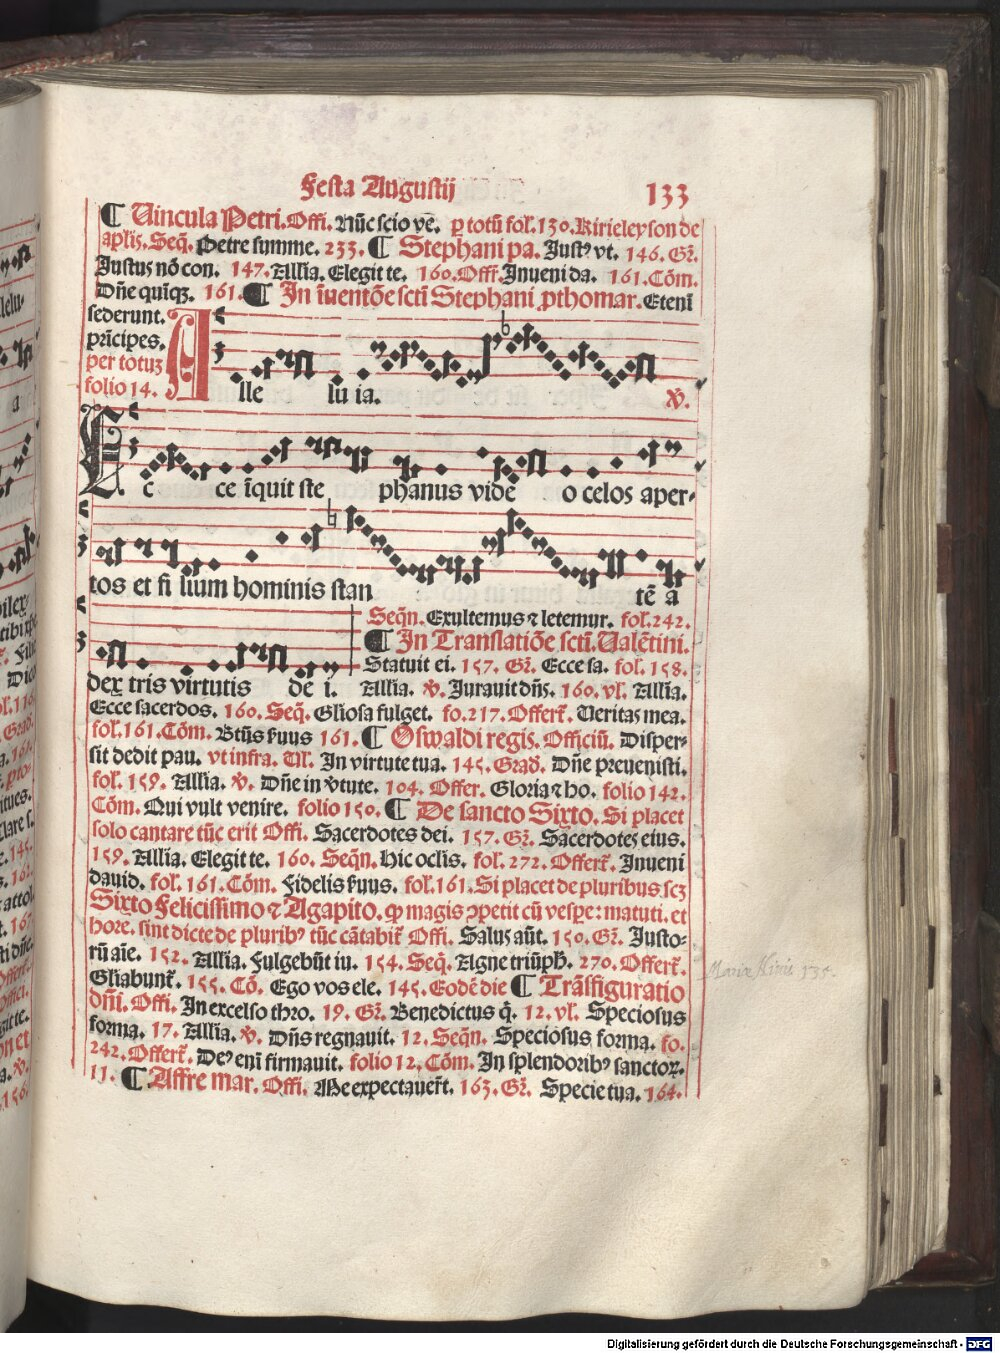 Festa Augustij 133
¶ Uincula Petri. Offi. Nūc scio vē. ꝑ totū fol. 130. Kirieleyson de
aplis. Seq̄. Petre summe. 233. ¶ Stephani pa. Justꝰ vt. 146. Gr̄.
Justus nō con. 147. Allīa. Elegit te. 160. Off̄. Inueni da. 161. Cōm.
Dn̄e quīqꝫ. 161. ¶ In īuentōe scti Stephani ꝓthomar. Etenī
sederunt.
prīcipes.
per totuꝫ
folio 14.
A lle lu ia. ℣.
Ec ce īquit ste phanus vide o celos aper-
tos et fi lium hominis stan tē a
dex tris virtutis de i.
Seq̄n. Exultemus ⁊ letemur. fol. 242.
¶ In Translatiōe scti. Ualētini.
Statuit ei. 157. Gr̄. Ecce sa. fol. 158.
Allīa. ℣. Jurauit dn̄s. 160. vl̄. Allīa.
Ecce sacerdos. 160. Seq̄. Gliosa fulget. fo. 217. Offert̄. Ueritas mea.
fol. 161. Cōm. Btūs ẜuus 161. ¶ Oswaldi regis. Officiū. Disper-
sit dedit pau. vt infra. Tll̄. In virtute tua. 145. Grad̄. Dn̄e preuenisti.
fol. 159. Allīa. ℣. Dn̄e in v̄tute. 104. Offer. Gloria ⁊ ho. folio 142.
Cōm. Qui vult venire. folio 150. ¶ De sancto Sixto. Si placet
solo cantare tūc erit Offi. Sacerdotes dei. 157. Gr̄. Sacerdotes eius.
159. Allīa. Elegit te. 160. Seq̄n. Hic oclis. fol. 272. Offert̄. Inueni
dauid. fol. 161. Cōm. Fidelis ẜuus. fol. 161. Si placet de pluribus scꝫ
Sixto Felicissimo ⁊ Agapito. ꝙ magis ɔpetit cū vesꝑe: matuti. et
hore. sint dicte de pluribꝰ tūc cātabit̄ Offi. Salus aūt. 150. Gr̄. Justo-
rū aīe. 152. Allīa. Fulgebūt iu. 154. Seq̄. Agne triūph̄. 270. Offert̄.
Gliabunt̄. 155. Cō. Ego vos ele. 145. Eodē die ¶ Trāsfiguratio
dn̄i. Offi. In excelso thro. 19. Gr̄. Benedictus q̇. 12. vl̄. Speciosus
forma. 17. Allīa. ℣. Dn̄s regnauit. 12. Seq̄n. Speciosus forma. fo.
242. Offert̄. Deꝰ enī firmauit. folio 12. Cōm. In splendoribꝰ sanctoꝝ.
11. ¶ Affre mar. Offi. Me expectauer̄t. 163. Gr̄. Specie tua. 164.
Digitalisierung gefördert durch die Deutsche Forschungsgemeinschaft - DFG